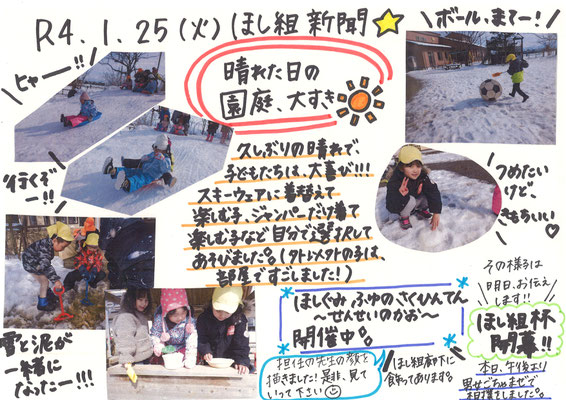 R4.1.25(火)ほし組 新聞☆
ボール、まてー!
ヒャーー!!
晴れた日の
園庭、大すき
行くぞ
ー!!
久しぶりの晴れで、
子どもたちは、大喜び!!!
スキーウェアに着替えて
楽しむ子、ジャンパーだけ着て
楽しむ子など自分で選択して
あそびました。
部屋ですごしました!)
つめたい
けど、
きもちいい♡
雪と泥が
一緒に
なったー!!!
ほしぐみ ふゆの さくひんてん
～せんせいのかお～
開催中。
担任の先生の顔を
描きました!是非、見て
いって下さい
ほし組廊下に
飾ってあります。
その様子は
明日、お伝え
します!!
ほし組杯
開幕!!
本日、午後より
男女ごちゃまぜで
相撲をしました。